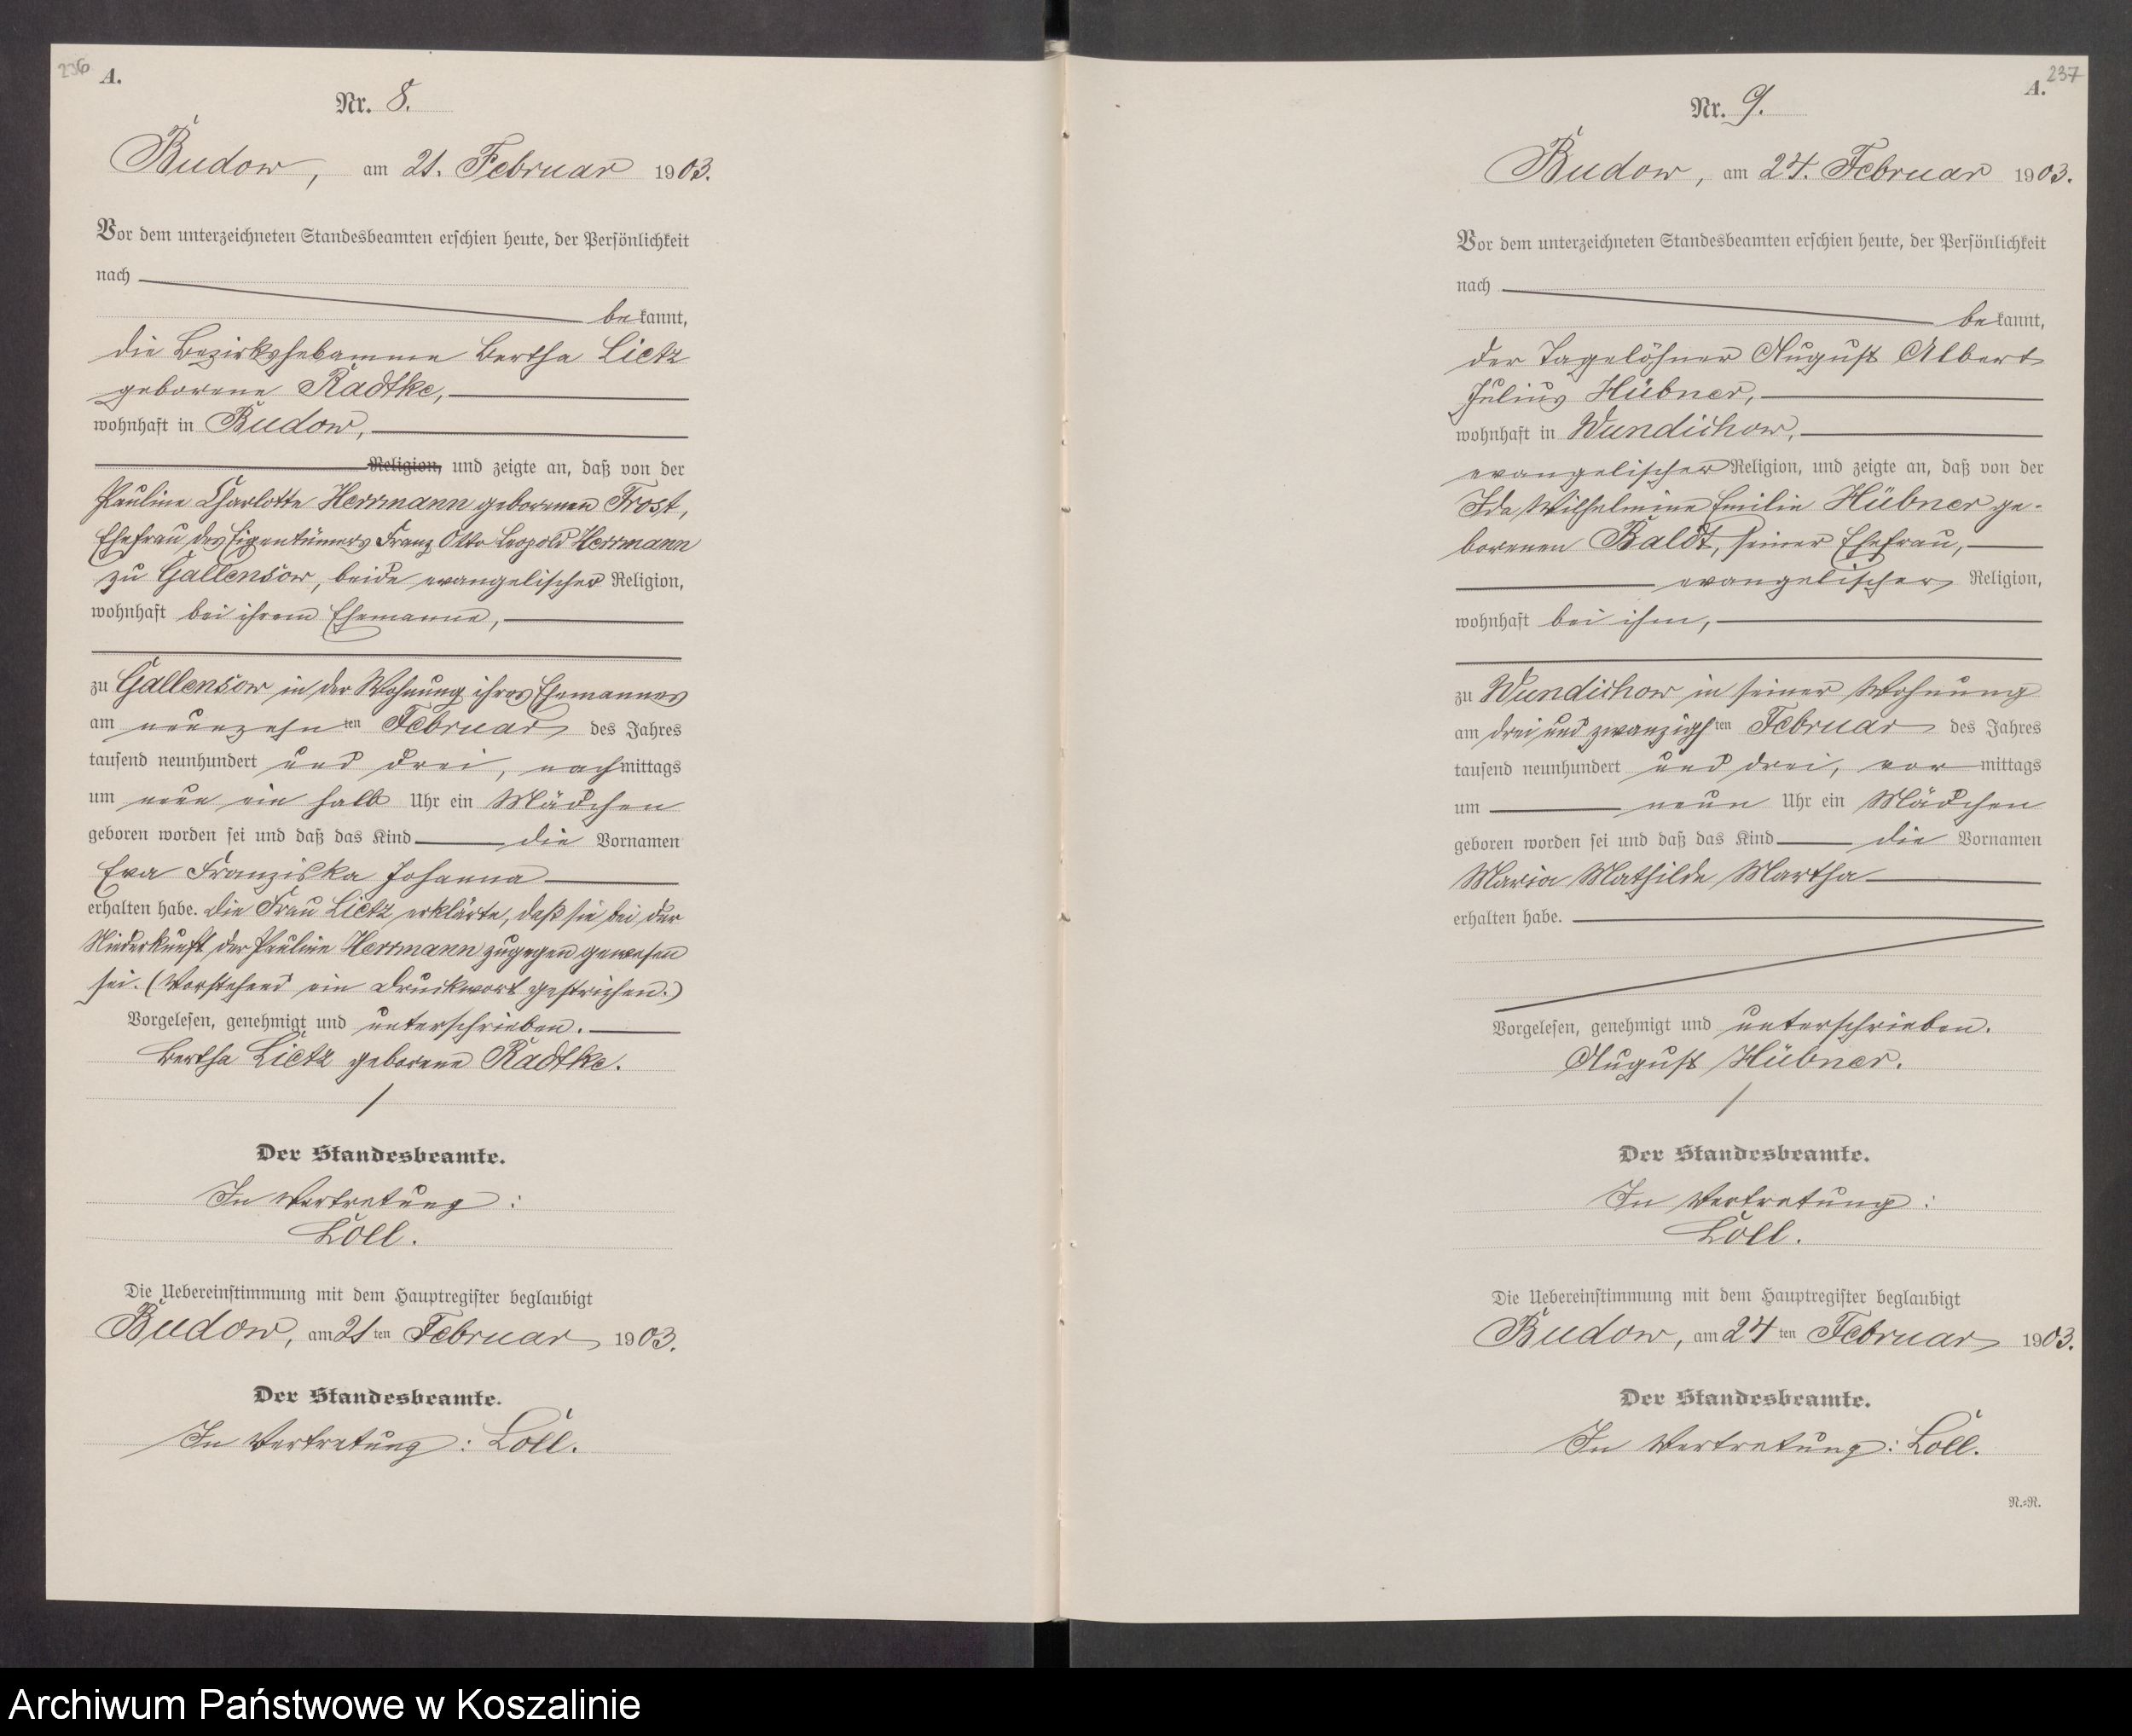 236
A.
Nr. 8.
Budow, am 21. Februar 1903.
Vor dem unterzeichneten Standesbeamten erschien heute, der Persönlichkeit
nach
bekannt,
die Bezirkshebamme Bertha Lietz
geborene Radtke,
wohnhaft in Budow,
Religion, und zeigte an, daß von der
Pauline Charlotte Herrmann geborenen Frost,
Ehefrau des Eigentümers Franz Otto Leopold Herrmann
zu Gallensow, beide evangelischer Religion,
wohnhaft bei ihrem Ehemanne,
zu Gallensow in der Wohnung ihres Ehemannes
am neunzehnten Februar des Jahres
tausend neunhundert und drei, nachmittags
um neun ein halb Uhr ein Mädchen
geboren worden sei und daß das Kind die Vornamen
Eva Franziska Johanna
erhalten habe. Die Frau Lietz erklärte, daß sie bei der
Niederkunft der Pauline Herrmann zugegen gewesen
sei. (Vorstehend ein Druckwort gestrichen.)
Vorgelesen, genehmigt und unterschrieben.
Bertha Lietz geborene Radtke.
Der Standesbeamte.
In Vertretung:
Loll.
Die Uebereinstimmung mit dem Hauptregister beglaubigt
Budow, am 21ten Februar 1903.
Der Standesbeamte.
In Vertretung: Loll.
237
A.
Nr. 9.
Budow, am 24. Februar 1903.
Vor dem unterzeichneten Standesbeamten erschien heute, der Persönlichkeit
nach
bekannt,
der Tagelöhner August Albert
Julius Hübner,
wohnhaft in Wundichow,
evangelischer Religion, und zeigte an, daß von der
Ida Wilhelmine Emilie Hübner ge-
borenen Baldt, seiner Ehefrau,
evangelischer Religion,
wohnhaft bei ihm,
zu Wundichow in seiner Wohnung
am drei und zwanzigsten Februar des Jahres
tausend neunhundert und drei, vormittags
um neun Uhr ein Mädchen
geboren worden sei und daß das Kind die Vornamen
Maria Mathilde Martha
erhalten habe.
Vorgelesen, genehmigt und unterschrieben.
August Hübner.
Der Standesbeamte.
In Vertretung:
Loll.
Die Uebereinstimmung mit dem Hauptregister beglaubigt
Budow, am 24ten Februar 1903.
Der Standesbeamte.
In Vertretung: Loll.
N.=R.
Archiwum Państwowe w Koszalinie